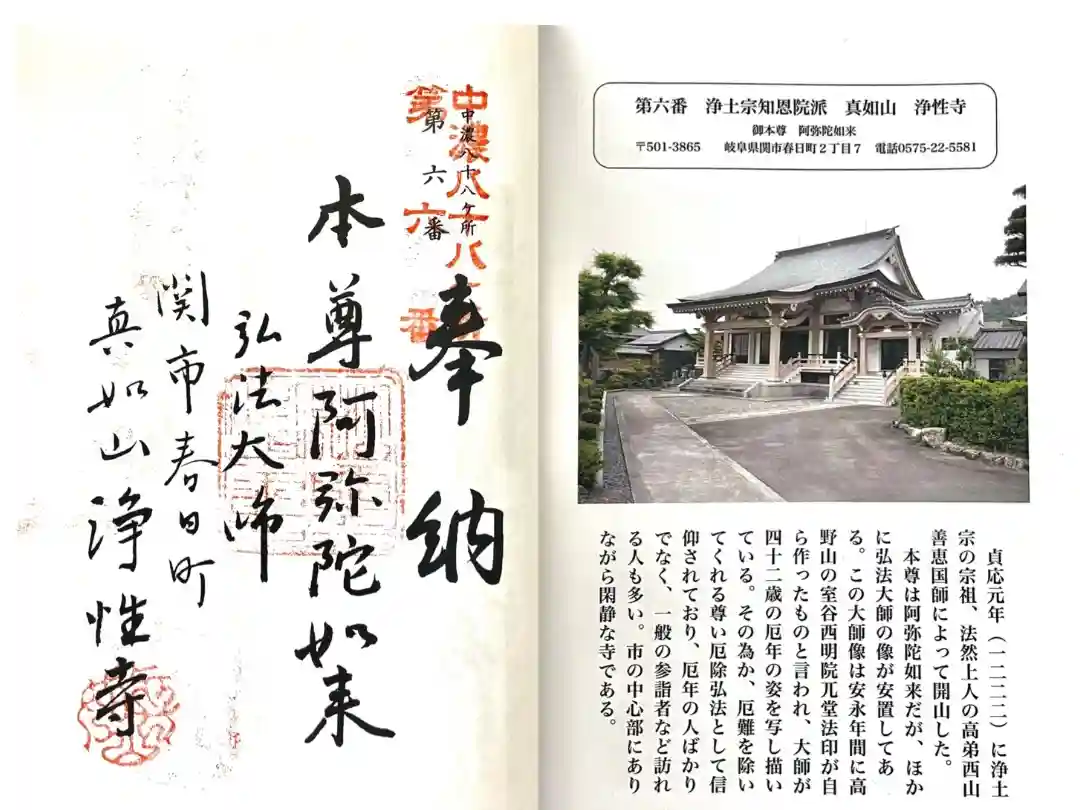 第六番　浄土宗知恩院派　真如山　浄性寺
御本尊　阿弥陀如来
〒501-3865　岐阜県関市春日町２丁目７　電話0575-22-5581
貞応元年（一二二二）に浄土
宗の宗祖、法然上人の高弟西山
善恵国師によって開山した。
本尊は阿弥陀如来だが、ほか
に弘法大師の像が安置してあ
る。この大師像は安永年間に高
野山の室谷西明院兀堂法印が自
ら作ったものと言われ、大師が
四十二歳の厄年の姿を写し描い
ている。その為か、厄難を除い
てくれる尊い厄除弘法として信
仰されており、厄年の人ばかり
でなく、一般の参詣者など訪れ
る人も多い。市の中心部にあり
ながら閑静な寺である。
中濃八十八ケ所
第六番
中濃八十八
第六番
奉納
本尊阿弥陀如来
弘法大師
関市春日町
真如山浄性寺